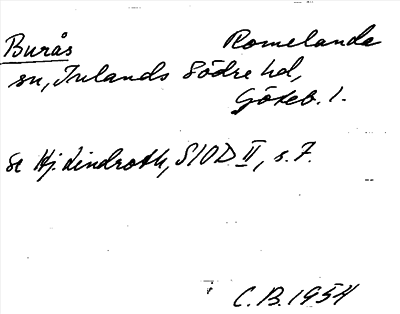 Burås Romelanda
sn, Inlands Södre hd,
Göteb. l.
se Hj. Lindroth, SIOD II, s. 7.
C.B. 1954